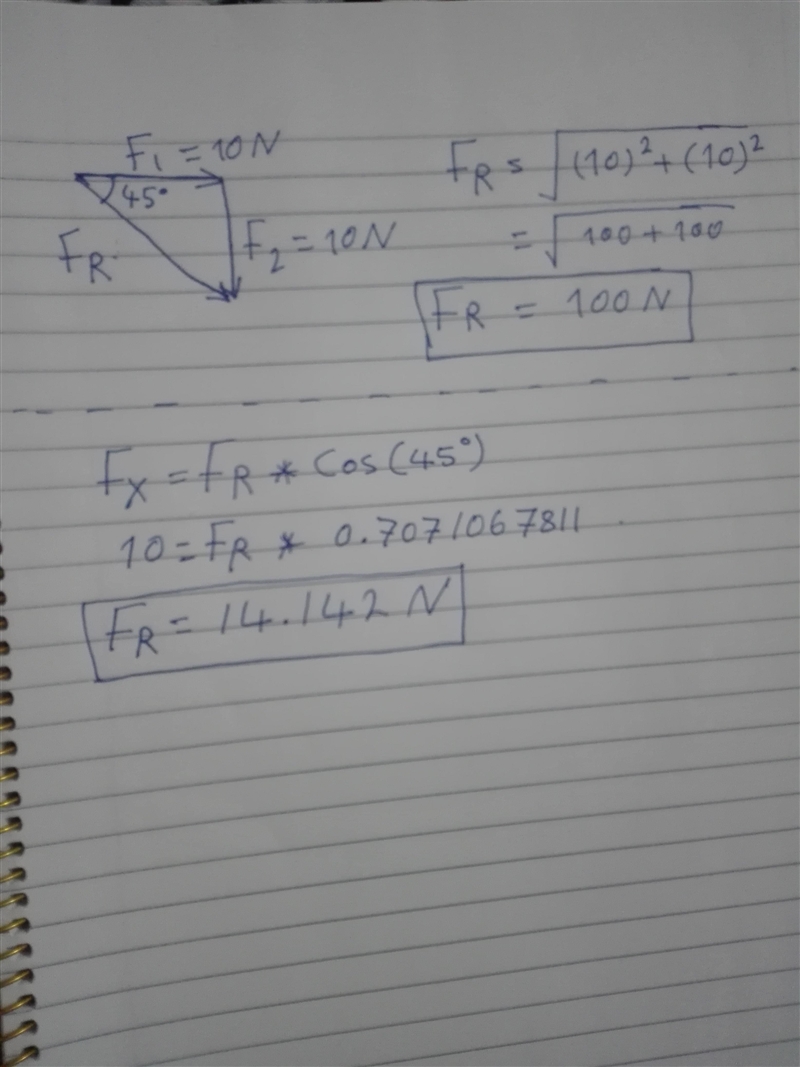 F1 = 10N
45°
FR
F2 = 10N
FR = √(10)² + (10)²
= √100 + 100
FR = 100 N
Fx = FR * Cos(45°)
10 = FR * 0.7071067811
FR = 14.142 N